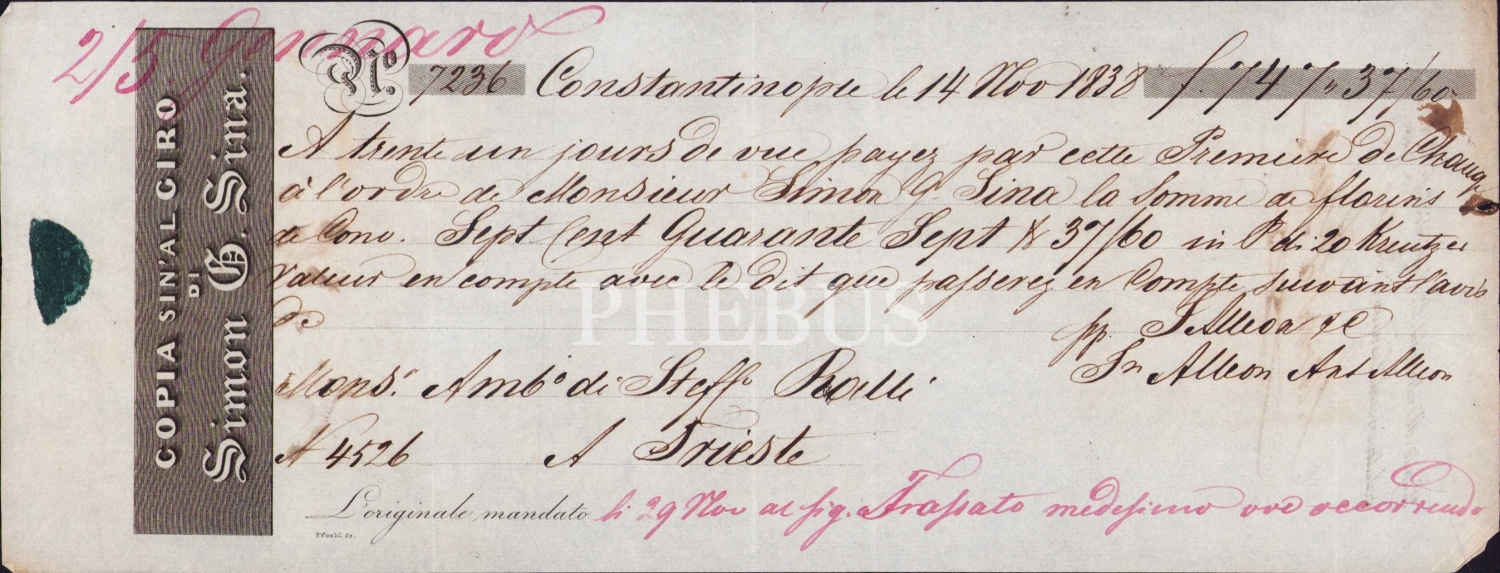 2/5. Gennaro
COPIA SIN'AL GIRO
DI
Simon G. Sina.
No. 7236 Constantinople le 14 Nov 1838 f. 747 " 37/60
A trente un jours de vue payez par cette Premiere de Chang
à l'ordre de Monsieur Simon G. Sina la somme de florins
de Conv. Sept Cent Quarante Sept & 37/60 in P di 20 Kreutzer
Valeur en compte avec le dit que passerez en Compte suivant l'avis
De
pp. J Alleon & C
Jn Alleon Ant Alleon
Mons.r Amb.o di Steff.o Ralli
N 4526 A Trieste
L'originale mandato li 29 Nov al sig. Trassato medesimo ove occorrendo
PHEBUS